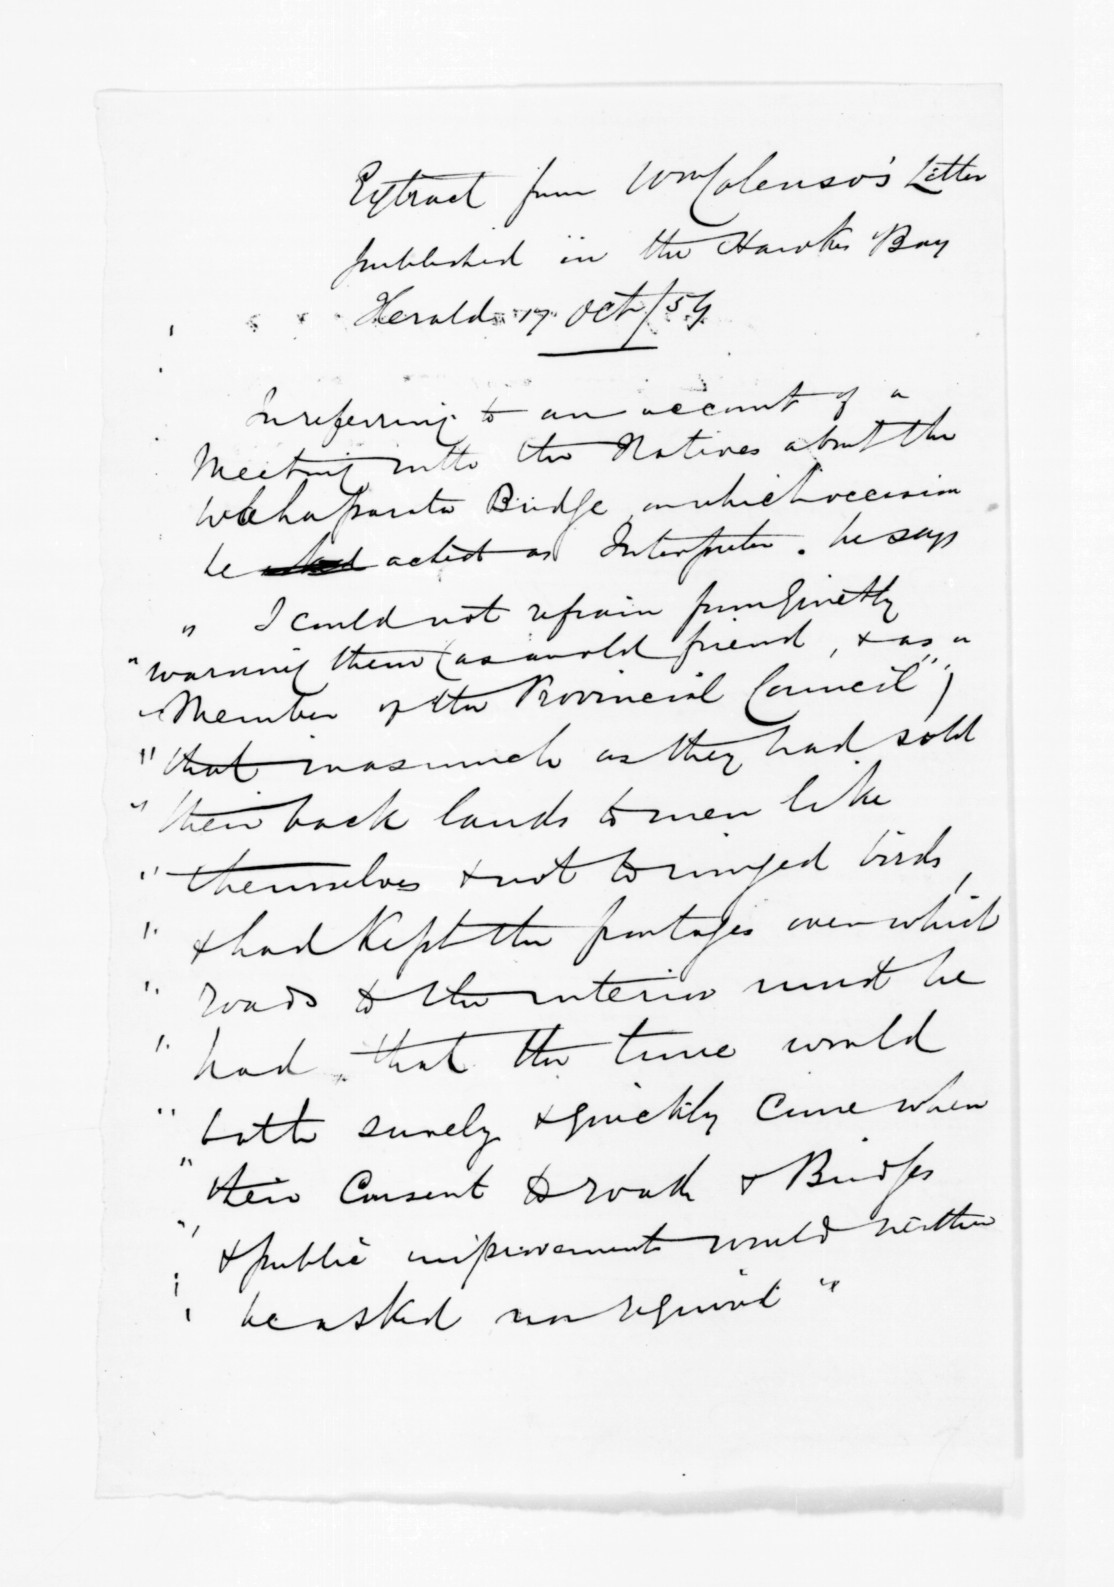 Extract from Wm Colenso's Letter
published in the Hawkes Bay
Herald 17 Oct/59
In referring to an account of a
Meeting with the Natives about the
Bridge on which occasion
he acted as Interpreter. he says
" I could not refrain from quietly
" warning them (as an old friend, & as a
" Member of the Provincial Council")
" that inasmuch as they had sold
" their back lands to men like
" themselves & not to winged birds,
" & had Kept the frontages over which
" roads to the interior must be
" had, that the time would
" both surely & quickly come when
" their Consent to roads & Bridges
" & public improvements would neither
" be asked nor required "